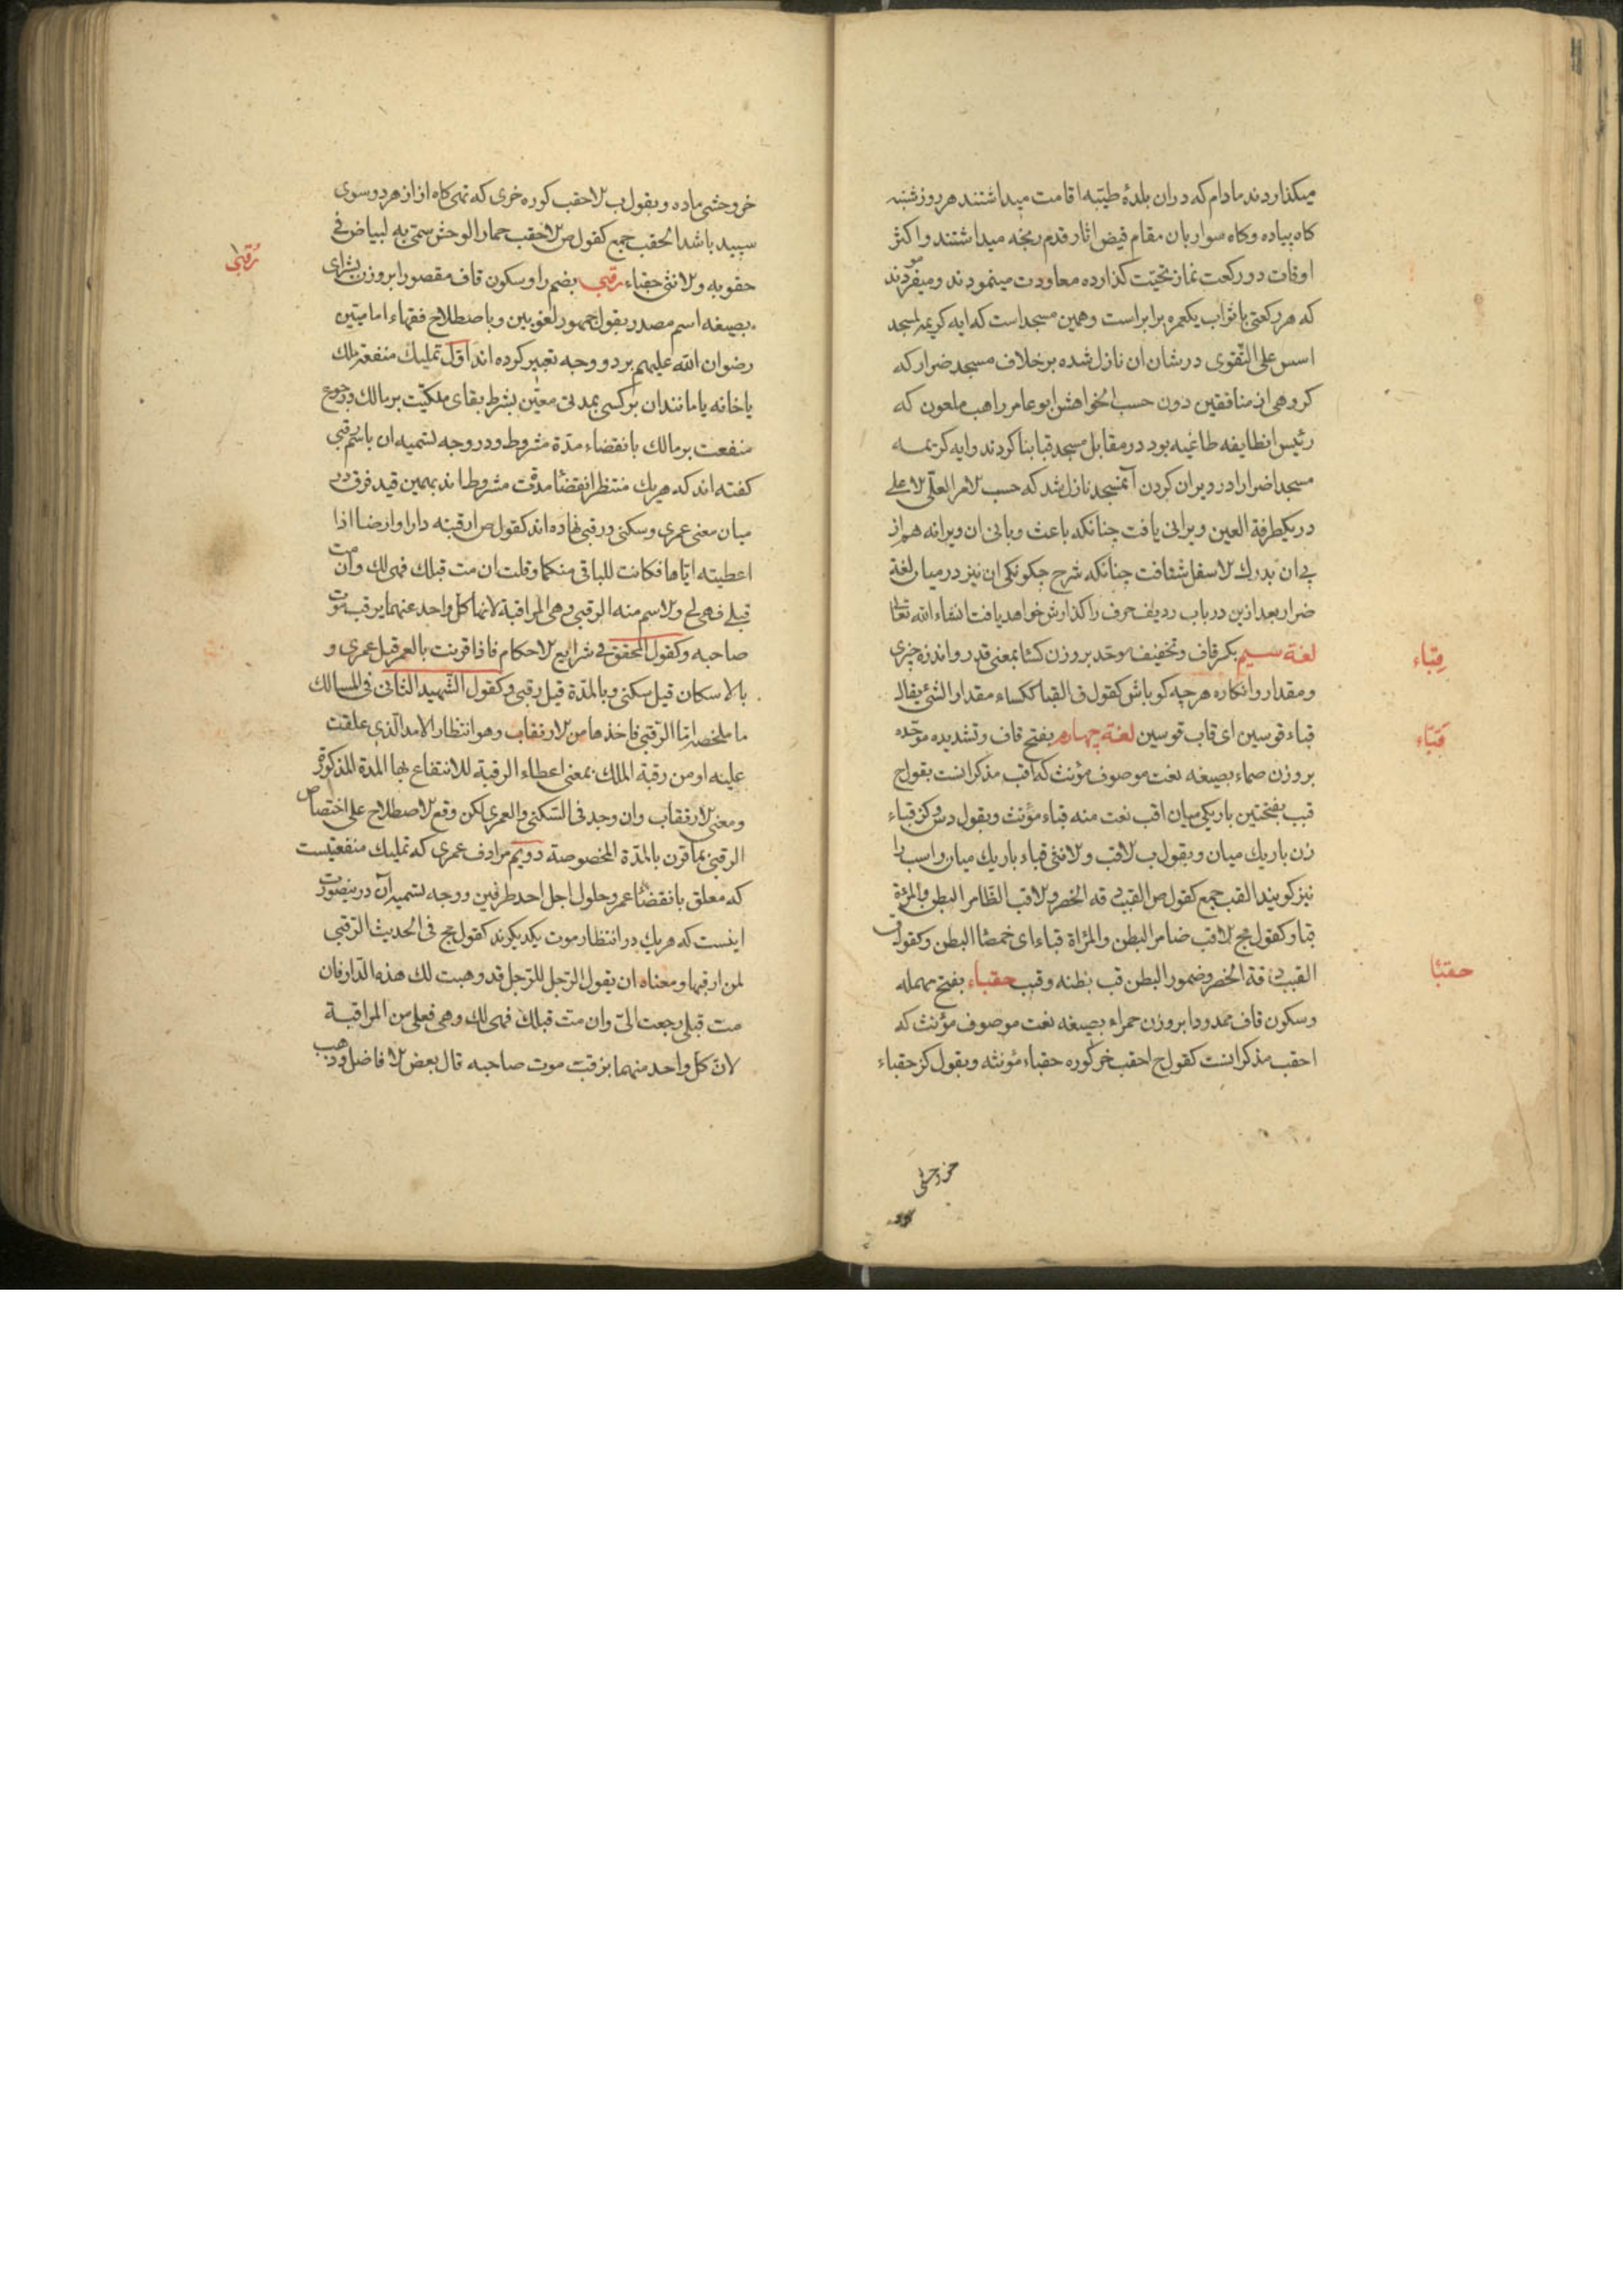 میکذاردند مادام که دران بلدهٔ طیّبه اقامت میداشتند هر روز شنبه
کاه پیاده وکاه سوار بان مقام فیض اثار قدم رنجه میداشتند و اکثر
اوقات دو رکعت نماز تحیّت کذارده معاودت مینمودند ومیفرمودند
که هر رکعتی با ثواب یکعمره برابر است وهمین مسجد است که ایه کریمه لمسجد
اسس علی التّقوی در شان ان نازل شده بر خلاف مسجد ضرار که
کروهی از منافقین دون حسب الخواهش ابو عامر راهب ملعون که
رئیس انطایفه طاغیه بود در مقابل مسجد قبا بنا کردند وایه کریمه
مسجدا ضرارا در ویران کردن آنمسجد نازل شد که حسب الامر العلّی الاعلی
در یکطرفة العین ویرانی یافت چنانکه باعث وبانی ان ویرانه هم از
پی ان بدرك الاسفل شتافت چنانکه شرح چکونکی ان نیز در میان لغة
ضرار بعد ازین در باب ردیف حرف را کذارش خواهد یافت انشاء الله تعالی
قِبَاء
لغة سیم بکسر قاف وتخفیف موحّده بروزن کسا بمعنی قدر واندزه چیزی
ومقدار وانکاره هر چه کو باش کقول ق القبا ککساء مقدار الشئ یقال
قَبّاء
قباء قوسین ای قاب قوسین لغة چهارم بفتح قاف وتشدیده موحّده
بروزن صماء بصیغه نعت موصوف مؤنث که اقب مذکر انست بقول ج
قبب بفتحتین باریکی میان اقب نعت منه قباء مؤنث وبقول دس وکز قباء
زن باریك میان وبقول ب الاقب والانثی قباء باریك میان واسب را
نیز کویند القب جمع کقول ص القبب دقه الخصر والاقب الظّامر البطن والمرءة
قبا وکقول مج الاقب ضامر البطن والمراة قباء ای خمصا البطن وکقول ق
حقبا
القبب دقة الخصر وضمور البطن قب بطنه وقبب حقباء بفتح مهمله
وسکون قاف ممدودا بروزن حمراء بصیغه نعت موصوف مؤنث که
احقب مذکر انست کقول ج احقب خرکوره حقباء مؤنثه وبقول کز حقباء
خر وحشی
خر وحشی ماده وبقول ب الاحقب کوره خری که تهی کاه او از هر دو سوی
سپید باشد الحقب جمع کقول ص الاحقب حمار الوحش سمّی به لبیاض فی
رُقبٰی
حقویه والانثی حقباء رقبی بضم را وسکون قاف مقصورا بروزن بشرای
بصیغه اسم مصدر بقول جمهور لغویین وباصطلاح فقهاء امامیّین
رضوان الله علیهم بر دو وجه تعبیر کرده اند اوّل تملیك منفعة ملك
یا خانه یا مانند ان بر کسی بمدتی معیّن بشرط بقای ملکیّت بر مالك ورجوع
منفعت بر مالك بانقضاء مدّة مشروط ودر وجه تسمیه ان باسم رقبی
کفته اند که هر یك منتظر انقضا مدّت مشروط اند بهمین قید فرق در
میان معنی عمری وسکنی ورقبی نهاده اند کقول ص ارقبته دارا او ارضا اذا
اعطیته ایّاها فکانت للباقی منکما وقلت ان مت قبلك فهی لك وان مت
قبلی فهی لی والاسم منه الرقبی وهی المراقبة لانما کل واحد عنهما یرقب موت
صاحبه وکقول المحقق فی شرایع الاحکام فاذا قرینت بالعمر قیل عمری و
بالاسکان قیل سکنی وبالمدّة قیل رقبی وکقول الشّهید الثّانی فی المسالك
ما ملخصه امّا الرّقبی فاخذها من الارتقاب وهو انتظار الامد الّذی علقت
علیه او من رقبة الملك بمعنی اعطاء الرقبة للانتفاع بها المدة المذکورة
ومعنی الارتقاب وان وجد فی السّکنی والعمری لکن وقع الاصطلاح علی اختصاص
الرقبی بما قرن بالمدّة المخصوصة دویم مرادف عمری که تملیك منفعتیست
که معلق بانقضا عمر وحلول اجل احد طرفین ووجه تسمیه آن درینصورت
اینست که هر یك در انتظار موت یکدیکرند کقول مج فی الحدیث الرّقبی
لمن ارقبها ومعناه ان یقول الرّجل للرّجل قد وهبت لك هذه الدّار فان
مت قبلی رجعت الیّ وان متّ قبلك فهی لك وهی فعلی من المراقبة
لانّ کلّ واحد منهما یرقب موت صاحبه قال بعض الافاضل وذهب